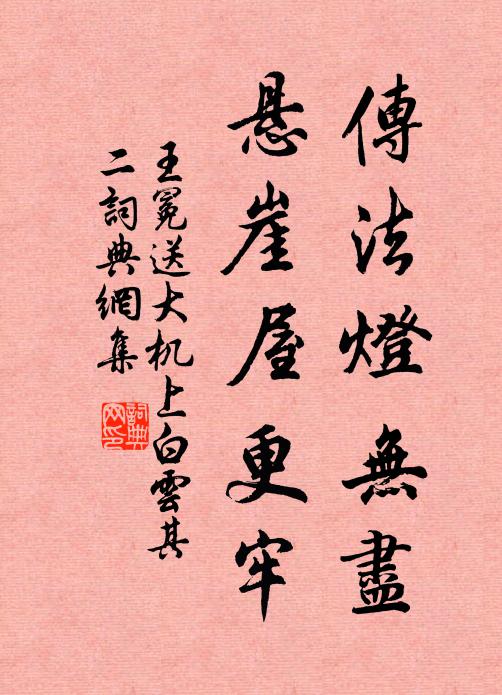 傳法燈無盡
悬崖屋更牢
王冕送大机上白雲其
二詞典網集
詞典網印